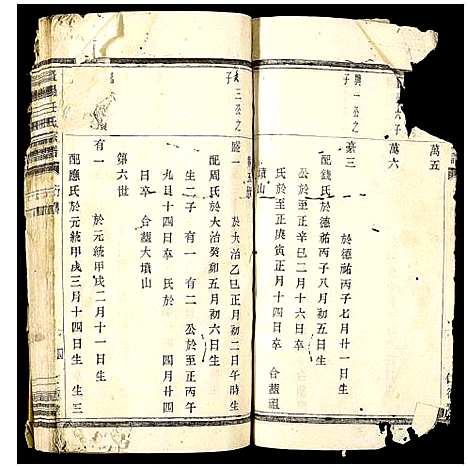 萬五
萬六
興一公之
子
素三
於德祐丙子七月廿一日生
配錢氏於德祐丙子八月初五日生
公於至正辛巳二月十六日卒
氏於至正庚寅正月廿四日卒 合葬祖
墳山
三公之
子
盛一
於大治乙巳正月初二日午時生
配周氏於大治癸卯五月初六日生
生二子 有一 有二 公於至正丙午
九月十四日卒 氏於 四月廿四
日卒 合葬大墳山
第六世
有一
於元統甲戌二月十一日生
配應氏於元統甲戌三月十四日生 生三